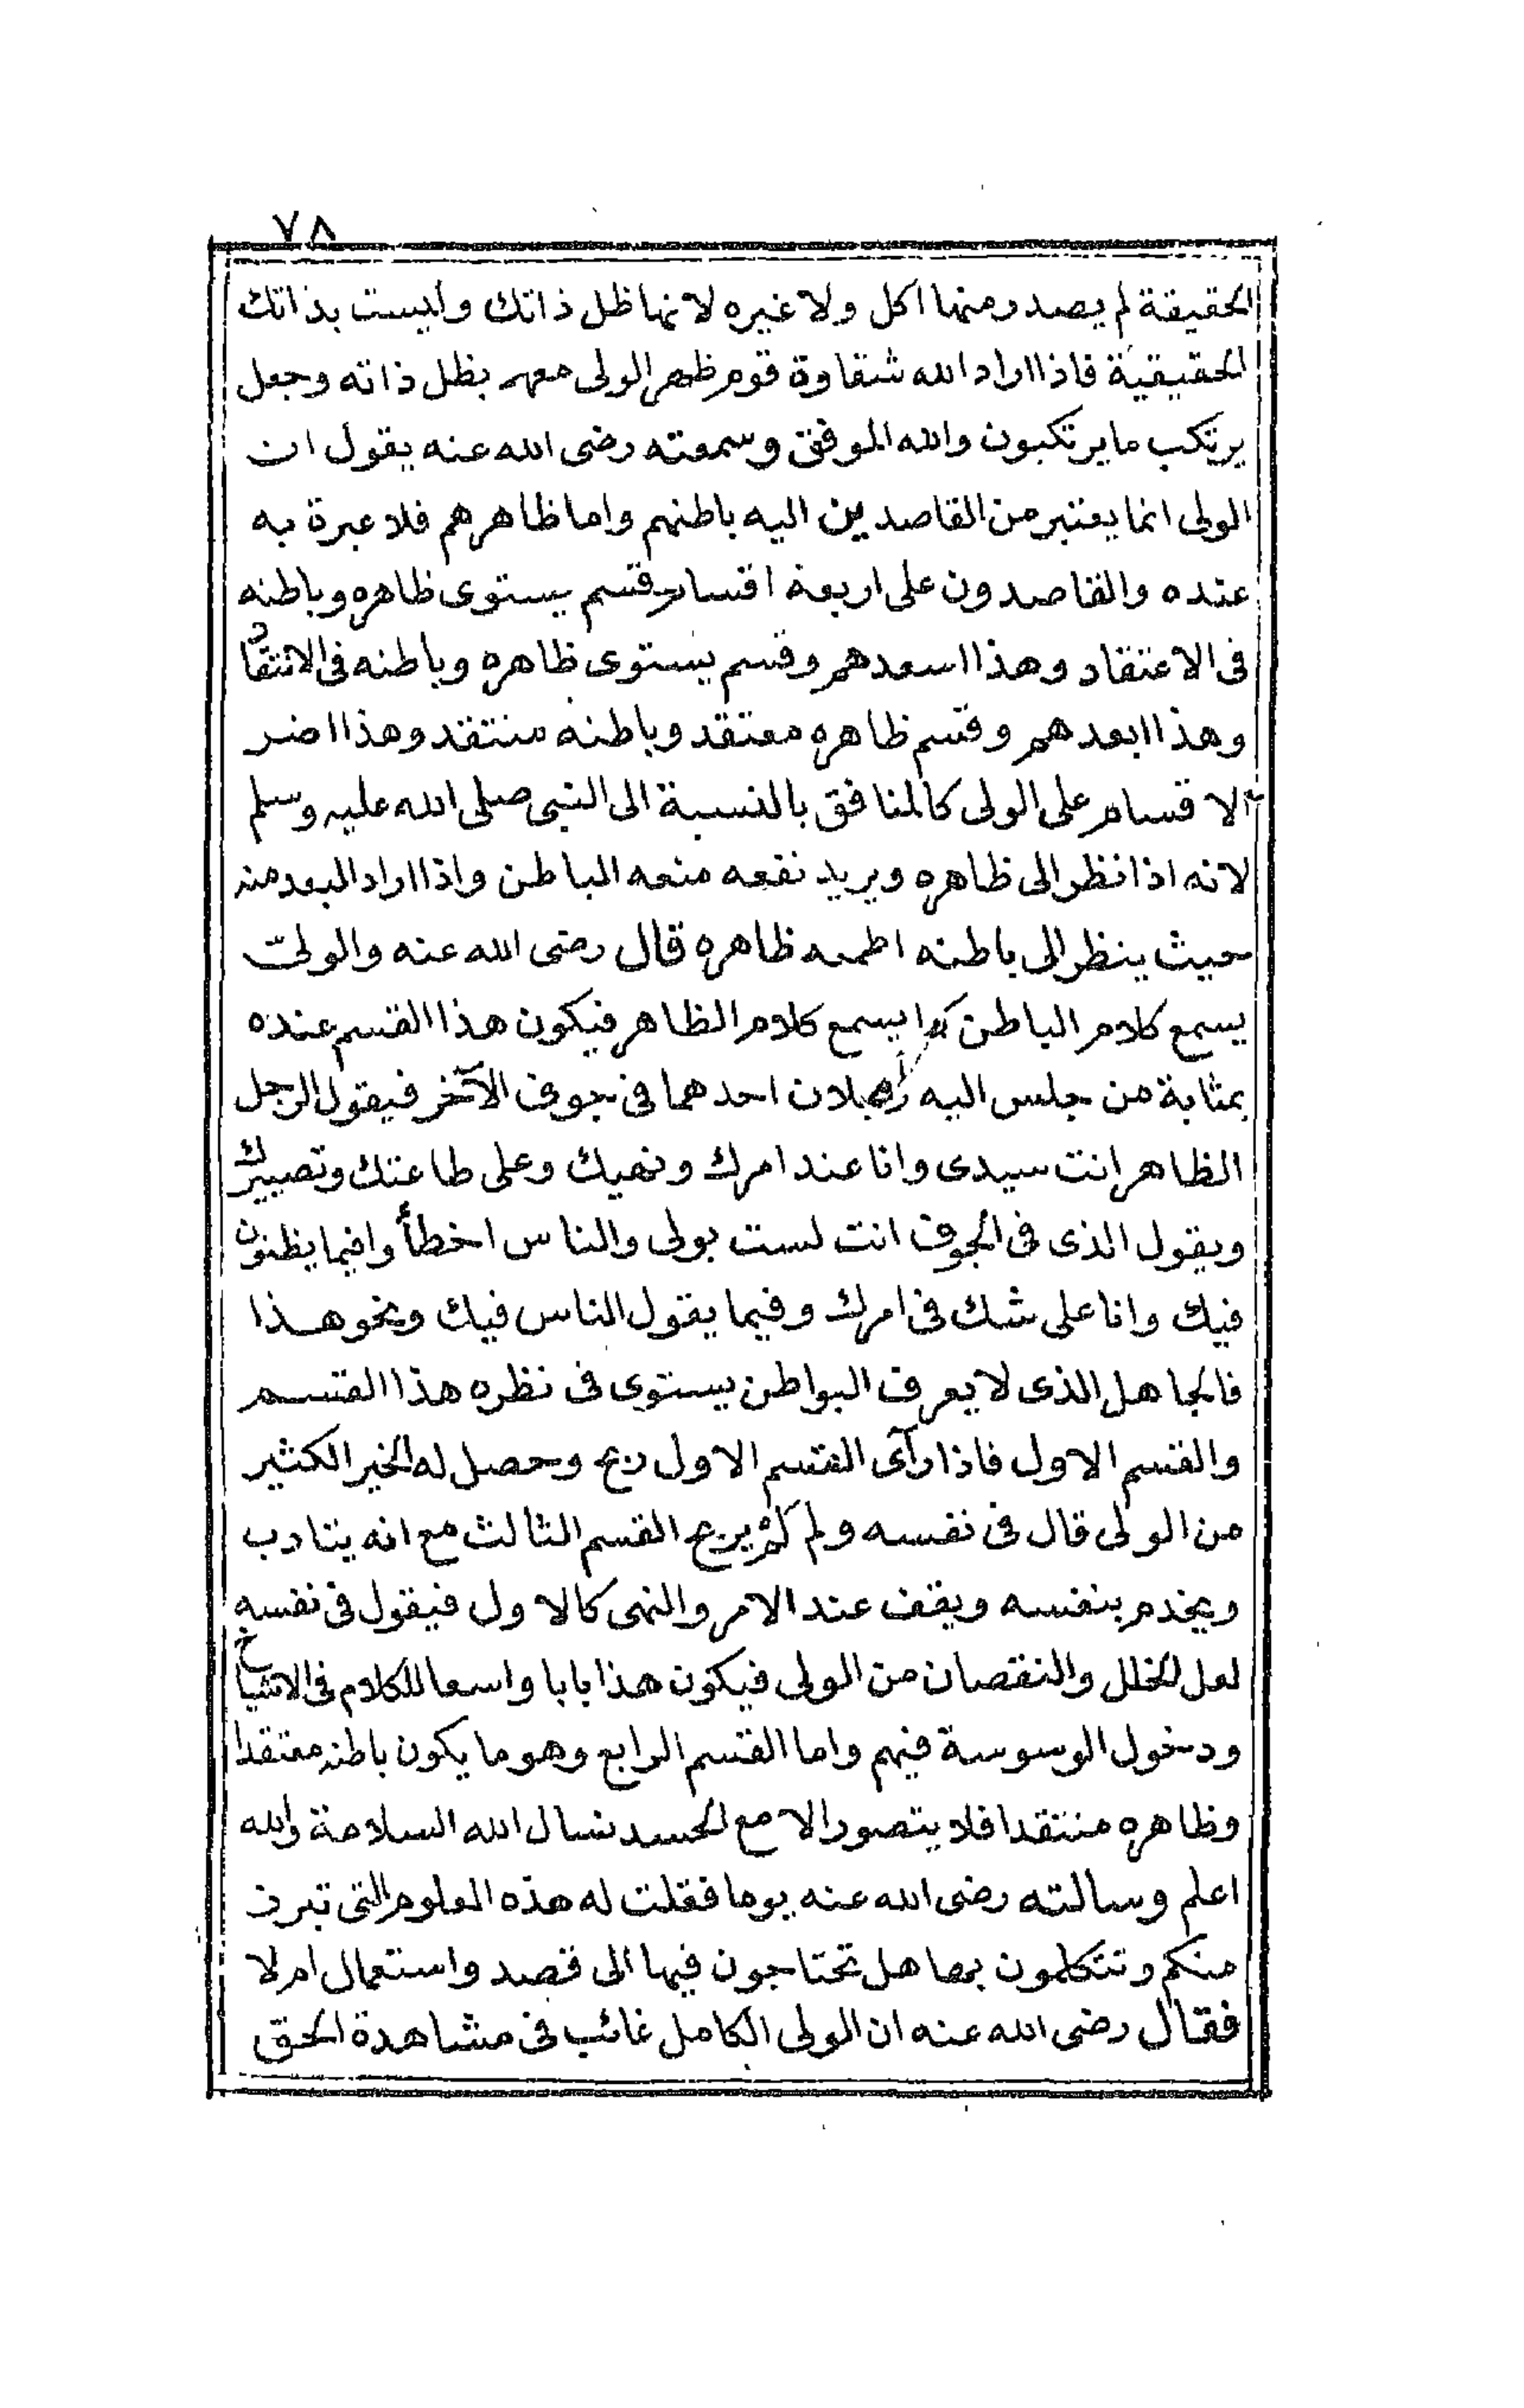 ٧٨
الحقيقة لم يصدر منها اكل ولا غيره لانها ظل ذاتك وليست بذاتك
الحقيقية فاذا اراد الله شقاوة قوم ظهر الولى معهم بظل ذاته وجعل
يرتكب ما يرتكبون والله الموفق وسمعته رضى الله عنه يقول ان
الولى انما يعتبر من القاصدين اليه باطنهم واما ظاهرهم فلا عبرة به
عنده والقاصدون على اربعة اقسام قسم يستوى ظاهره وباطنه
فى الاعتقاد وهذا اسعدهم وقسم يستوى ظاهره وباطنه فى الانتقاد
وهذا ابعدهم وقسم ظاهره معتقد وباطنه منتقد وهذا اضر
الاقسام على الولى كالمنافق بالنسبة الى النبى صلى الله عليه وسلم
لانه اذا نظر الى ظاهره ويريد نفعه منعه الباطن واذا اراد البعد منه
حيث ينظر الى باطنه اطمعه ظاهره قال رضى الله عنه والولىّ
يسمع كلام الباطن كما يسمع كلام الظاهر فيكون هذا القسم عنده
بمثابة من جلس اليه رجلان احدهما فى جوف الآخر فيقول الرجل
الظاهر انت سيدى وانا عند امرك ونهيك وعلى طاعتك وتصييرك
ويقول الذى فى الجوف انت لست بولى والناس اخطأوا فيما يظنون
فيك وانا على شك فى امرك وفيما يقول الناس فيك ونحو هذا
فالجاهل الذى لا يعرف البواطن يستوى فى نظره هذا القسم
والقسم الاول فاذا رآى القسم الاول ربح وحصل له الخير الكثير
من الولى قال فى نفسه ولم لم يربح القسم الثالث مع انه يتادب
ويخدم بنفسه ويقف عند الامر والنهى كالاول فيقول فى نفسه
لعل الخلل والنقصان من الولى فيكون هذا بابا واسعا للكلام فى الاشياخ
ودخول الوسوسة فيهم واما القسم الرابع وهو ما يكون باطنه معتقدا
وظاهره منتقدا فلا يتصور الا مع الحسد نسال الله السلامة والله
اعلم وسالته رضى الله عنه يوما فقلت له هذه العلوم التى تبرز
منكم وتتكلمون بها هل تحتاجون فيها الى قصد واستعمال ام لا
فقال رضى الله عنه ان الولى الكامل غائب فى مشاهدة الحق